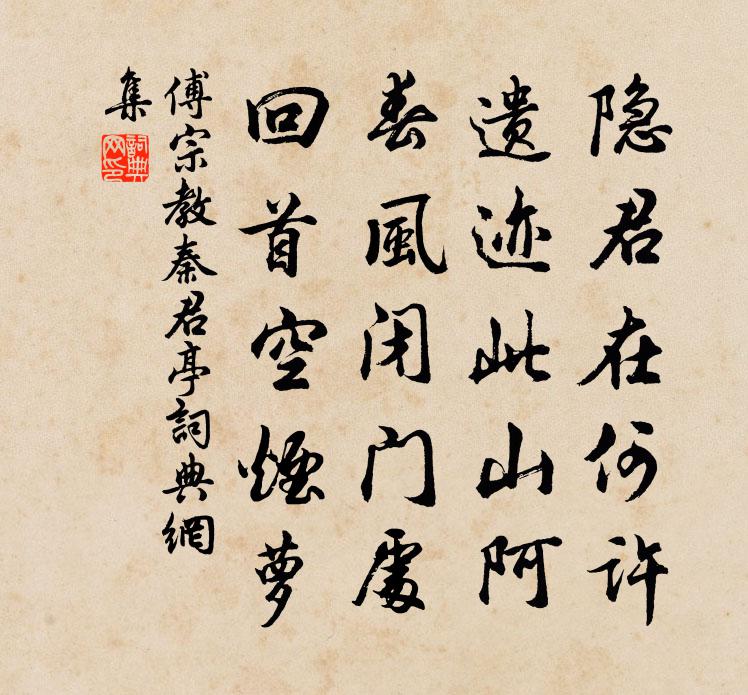 隐君在何许
遗迹此山阿
春風闭门處
回首空煙萝
傅宗教秦君亭詞典網
集
詞典网印